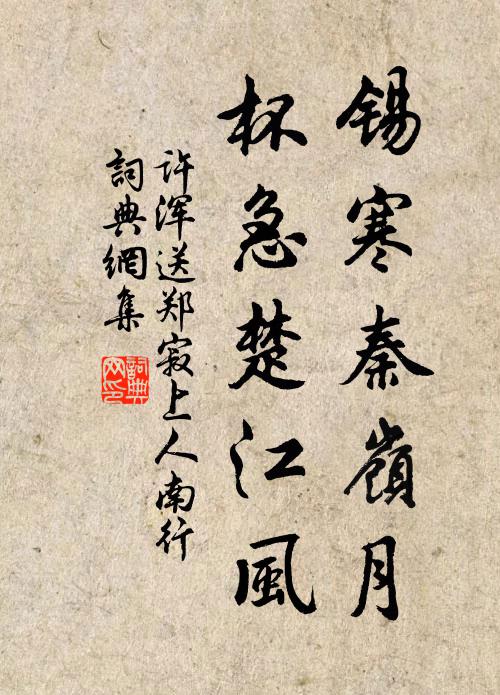 锡寒秦嶺月
杯急楚江風
许渾送郑寂上人南行
詞典網集
詞典网印